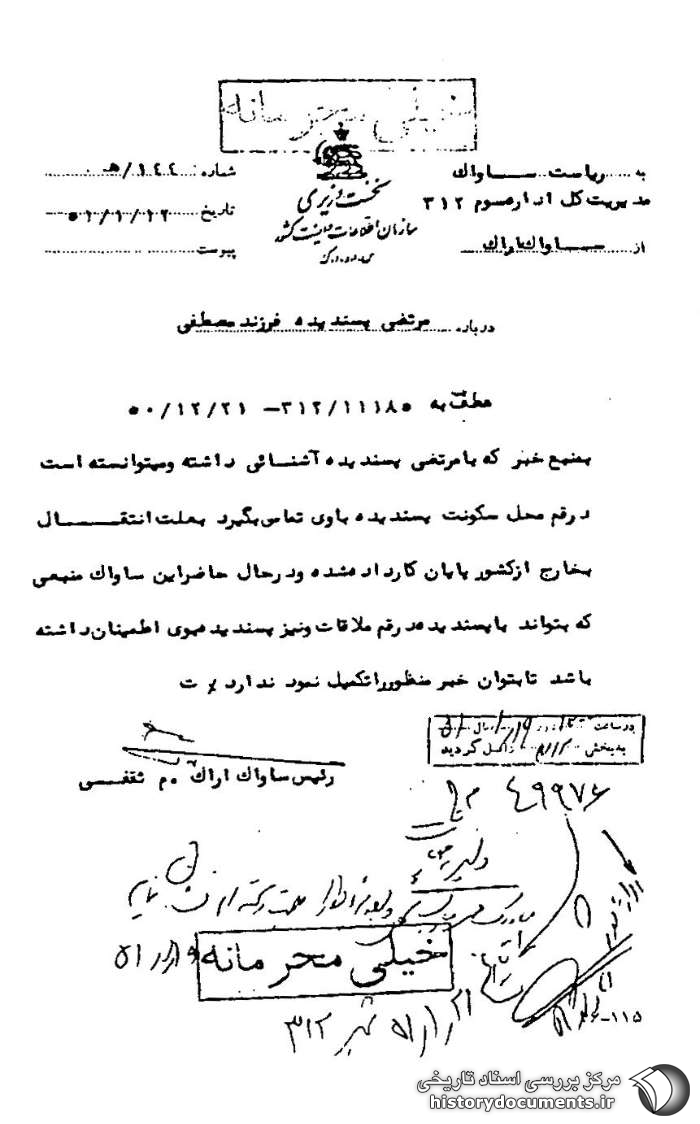 خیلی محرمانه
به ریاست ســاواك
مدیریت کل اداره سوم ۳۱۲
از ســاواك اراك
نخست وزیری
سازمان اطلاعات و امنیت کشور
شماره: ۱۴۴/هـ
تاریخ ۵۱/۱/۱۲
پیوست
درباره مرتضی پسندیده فرزند مصطفی
عطف به ۳۱۲/۱۱۱۸۵ـ ۵۰/۱۲/۲۱
منبع خبر که با مرتضی پسندیده آشنائی داشته و میتوانسته است
در قم محل سکونت پسندیده با وی تماس بگیرد بعلت انتقـــال
بخارج از کشور پایان کار داده شده و در حال حاضر این ساواك منبعی
که بتواند با پسندیده در قم ملاقات و نیز پسندیده بوی اطمینان داشته
باشد تا بتوان خبر منظور را تکمیل نمود ندارد ت
در ساعت روز سال ۵۱
به بخش ۳۱۲ واصل گردید
رئیس ساواك اراك ـ م ثقفــی
۴۹۹۷۶
خیلی محرمانه
۳۱۲
۱۱۵-۳۶
مرکز بررسی اسناد تاریخی
historydocuments.ir